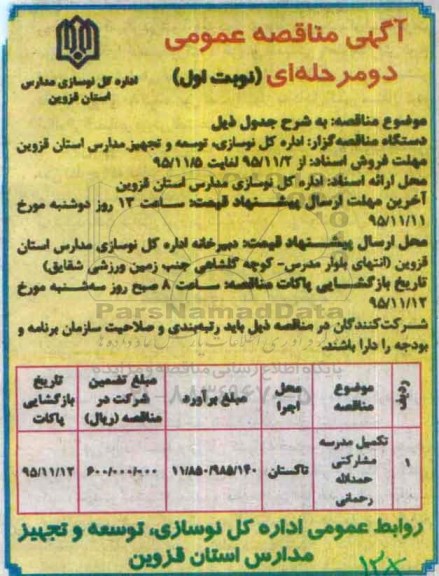 آگهی مناقصه عمومی
دومرحله‌ای (نوبت اول)
اداره کل نوسازی مدارس
استان قزوین
موضوع مناقصه: به شرح جدول ذیل
دستگاه مناقصه‌گزار: اداره کل نوسازی، توسعه و تجهیز مدارس استان قزوین
مهلت فروش اسناد: از ۹۵/۱۱/۲ لغایت ۹۵/۱۱/۵
محل ارائه اسناد: اداره کل نوسازی مدارس استان قزوین
آخرین مهلت ارسال پیشنهاد قیمت: ساعت ۱۳ روز دوشنبه مورخ
۹۵/۱۱/۱۱
محل ارسال پیشنهاد قیمت: دبیرخانه اداره کل نوسازی مدارس استان
قزوین (انتهای بلوار مدرس- کوچه گلشاهی جنب زمین ورزشی شقایق)
تاریخ بازگشایی پاکات مناقصه: ساعت ۸ صبح روز سه‌شنبه مورخ
۹۵/۱۱/۱۲
ParsNamadData
شرکت‌کنندگان در مناقصه ذیل باید رتبه‌بندی و صلاحیت سازمان برنامه و
بودجه را دارا باشند.
پایگاه اطلاع رسانی مناقصه و مزایده
ردیف
موضوع
مناقصه
محل
اجرا
مبلغ برآورد
مبلغ تضمین
شرکت در
مناقصه (ریال)
تاریخ
بازگشایی
پاکات
۱
تکمیل مدرسه
مشارکتی
حمداله
رحمانی
تاکستان
۱۱/۸۵۰/۹۸۵/۱۴۰
۶۰۰/۰۰۰/۰۰۰
۹۵/۱۱/۱۲
روابط عمومی اداره کل نوسازی، توسعه و تجهیز
مدارس استان قزوین